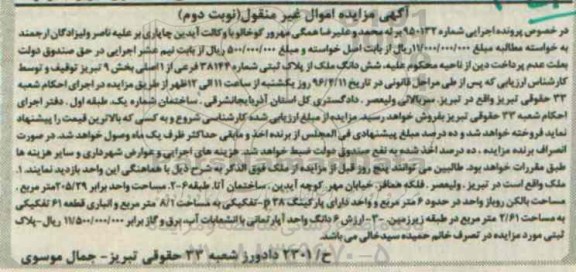 آگهی مزایده اموال غیر منقول(نوبت دوم)
در خصوص پرونده اجرایی شماره 950133 برله محمد و علیرضا همگی مهرور کوخالو با وکالت آیدین چاپاری بر علیه ناصر ولیزادگان ارجمند
به خواسته مطالبه مبلغ 11/000/000/000 ریال از بابت اصل خواسته و مبلغ 500/000/000 ریال از بابت نیم عشر اجرایی در حق صندوق دولت
بعلت عدم پرداخت دین از ناحیه محکوم علیه، شش دانگ ملک از پلاک ثبتی شماره 38144 فرعی از 1 اصلی بخش 9 تبریز توقیف و توسط
کارشناس ارزیابی که پس از طی مراحل قانونی در تاریخ 96/4/11 روز یکشنبه از ساعت 11 الی 12 ظهر از طریق مزایده در اجرای احکام شعبه
33 حقوقی تبریز واقع در تبریز، سربالائی ولیعصر، دادگستری کل استان آذربایجانشرقی، ساختمان شماره یک، طبقه اول، دفتر اجرای
احکام شعبه 33 حقوقی تبریز بفروش خواهد رسید. مزایده از مبلغ ارزیابی شده کارشناسی شروع و به کسی که بالاترین قیمت را پیشنهاد
نماید فروخته خواهد شد و ده درصد مبلغ پیشنهادی فی المجلس از برنده اخذ و مابقی حداکثر ظرف یک ماه وصول خواهد شد. در صورت
انصراف برنده مزایده، ده درصد اخذ شده به نفع صندوق دولت ضبط خواهد شد. هزینه های اجرایی و عوارض شهرداری و سایر هزینه ها
طبق مقررات خواهد بود. طالبین می توانند پنج روز قبل از مزایده از ملک فوق الذکر به شرح ذیل با هماهنگی این واحد بازدید نمایند. 1.
ملک واقع است در تبریز، ولیعصر، فلکه همافر، خیابان مهر، کوچه آیدین، ساختمان آنا، طبقه 6-2. مساحت واحد برابر 205/29 متر مربع،
مساحت بالکن روباز واحد در حدود 6 متر مربع و واحد دارای پارکینگ 38 ج-تفکیکی به مساحت 8/1 متر مربع و انباری قطعه 61 تفکیکی
به مساحت 2/61 متر مربع در طبقه زیرزمین. 3- ارزش 6 دانگ واحد آپارتمانی با انشعابات آب، برق و گاز برابر 11/500/000/000 ریال-پلاک
ثبتی مورد مزایده در تصرف خانم حمیده سیدخالی می باشد
ح/2301 دادورز شعبه 33 حقوقی تبریز- جمال موسوی